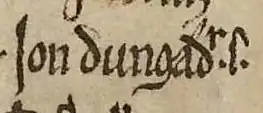 Jon dungadr.s.